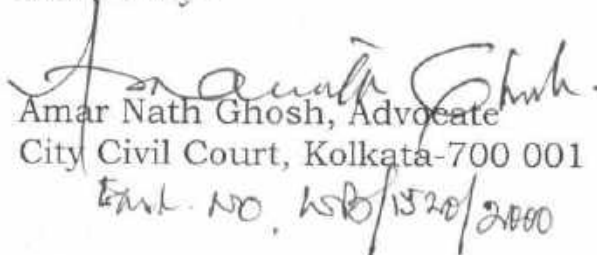 Amarnath Ghosh.
Amar Nath Ghosh, Advocate
City Civil Court, Kolkata-700 001
Enrl. NO. WB/1520/2000